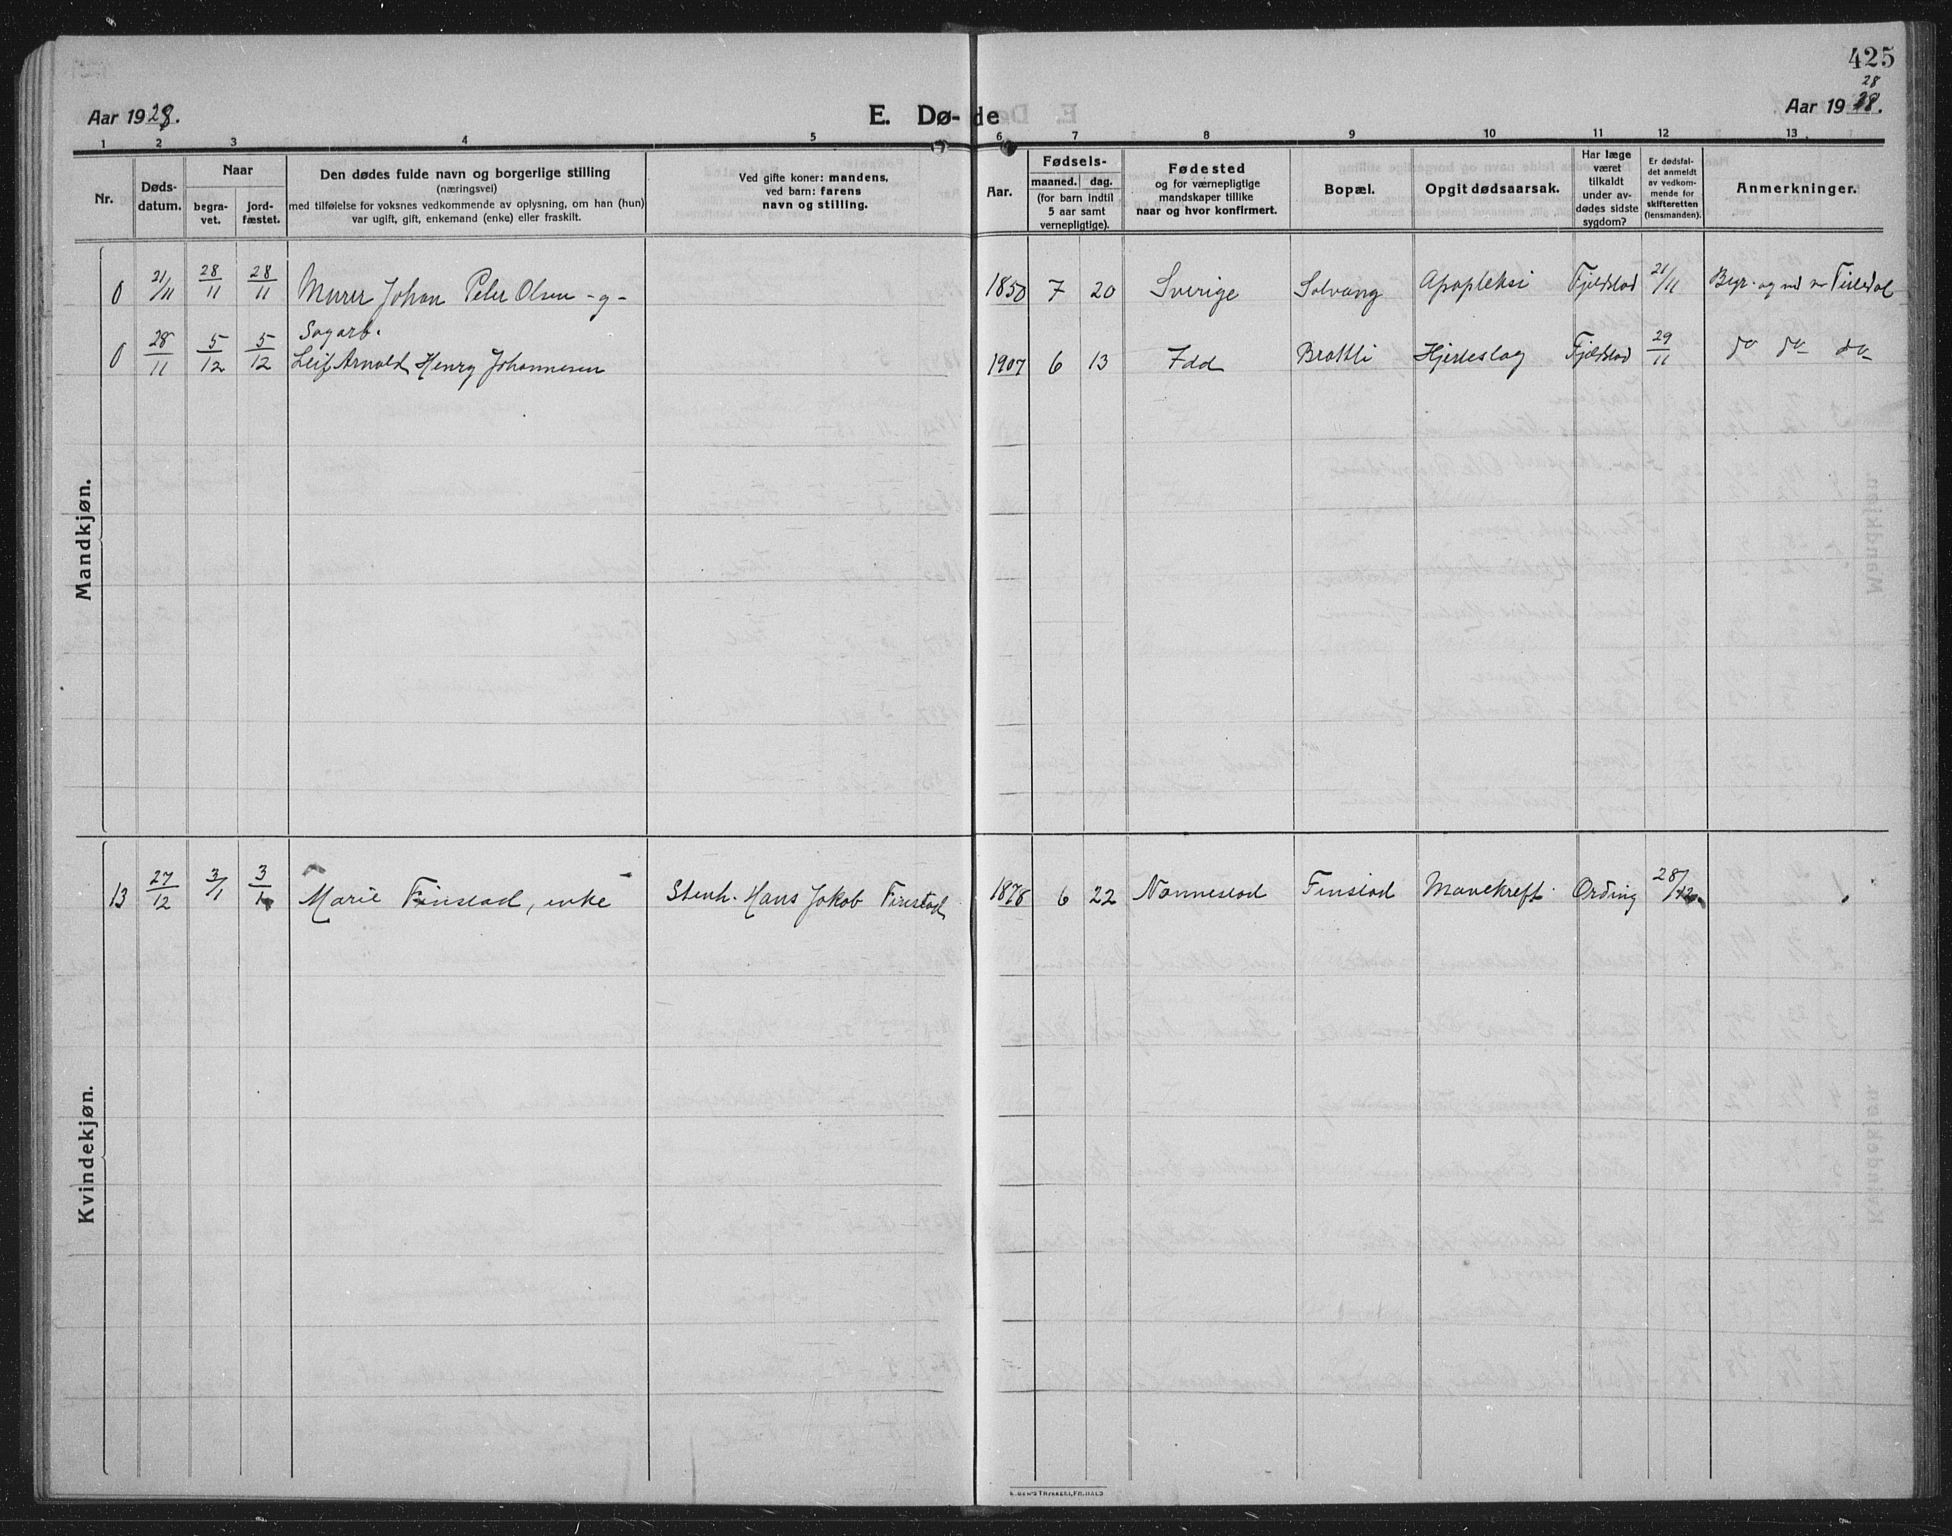 425
Aar 1928. E. Dø- de Aar 1928.
28
1 2 3 4 5 6 7 8 9 10 11 12 13
Nr.
Døds-
datum.
Naar
begra-
vet.
jord-
fæstet.
Den dødes fulde navn og borgerlige stilling
(næringsvei)
med tilføielse for voksnes vedkommende av oplysning, om han (hun)
var ugift, gift, enkemand (enke) eller fraskilt.
Ved gifte koner: mandens,
ved barn: farens
navn og stilling.
Aar.
Fødsels-
maaned. dag.
(for barn indtil
5 aar samt
vernepligtige).
Fødested
og for værnepligtige
mandskaper tillike
naar og hvor konfirmert.
Bopæl.
Opgit dødsaarsak.
Har læge
været
tilkaldt
under av-
dødes sidste
sygdom?
Er dødsfal-
det anmeldt
av vedkom-
mende for
skifteretten
(lensmanden).
Anmerkninger.
Mandkjøn.
0 21/11 28/11 28/11 Murer Johan Peter Olsen -g- 1850 7 20 Sverige Solvang Apopleksi Fjeldstad 21/11 Begr. og
Sagarb.
0 28/11 5/12 5/12 Leif Arnold Henry Johannesen 1907 6 13 Idd Brattli Hjerteslag Fjeldstad 29/11 do do do
Kvindekjøn.
13 27/12 3/1 3/1 Marie Finstad, enke Stenh. Hans Jakob Finstad 1878 6 22 Nannestad Finstad Mavekreft Ording 28/12